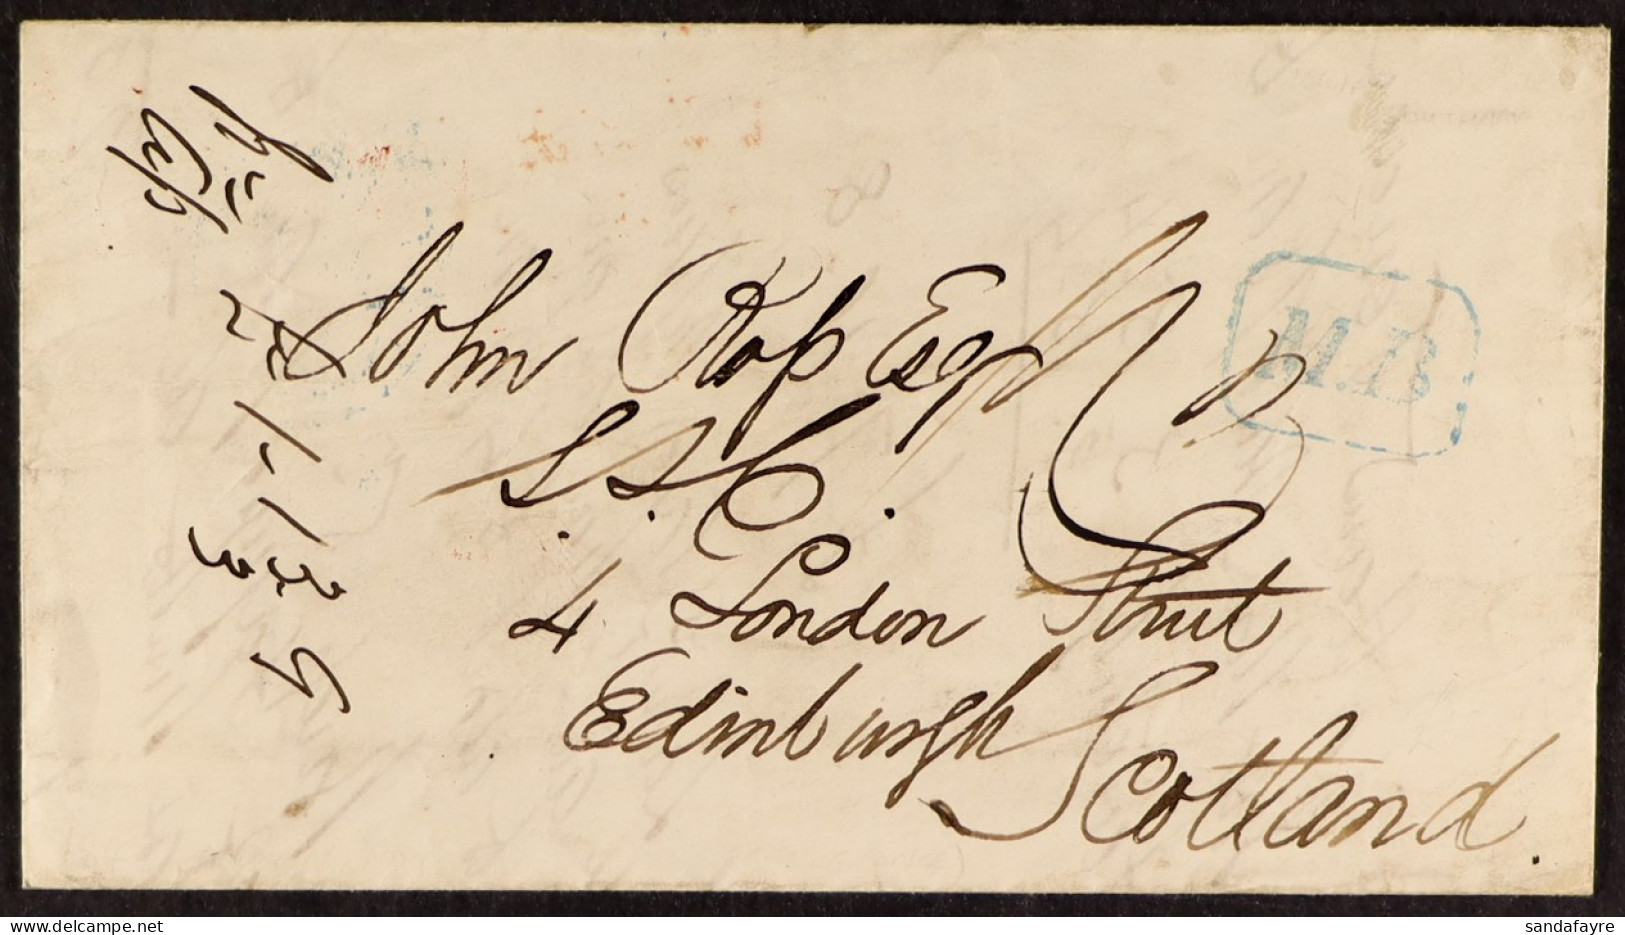 John Rofs Esq
S. S. C.
4 London Street
Edinburgh
Scotland.
M.B
sandafayre